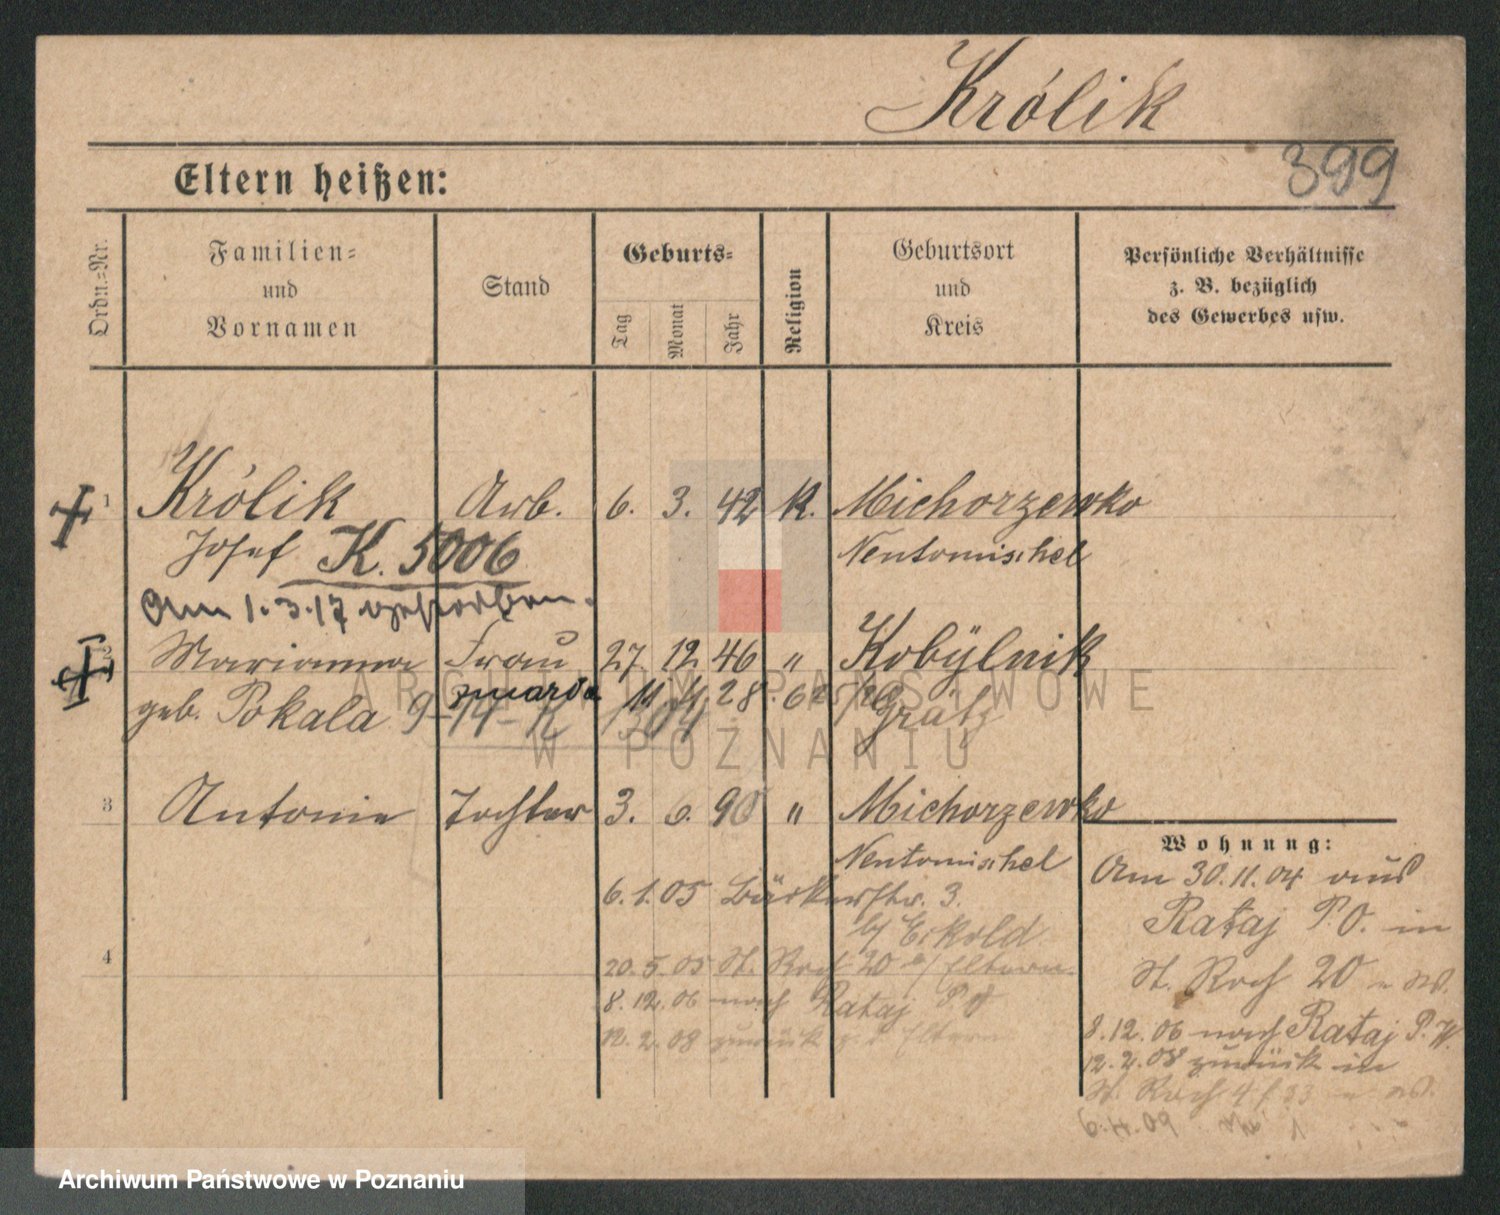 Królik
399
Eltern heißen:
Ordn.=Nr.
Familien=
und
Vornamen
Stand
Geburts=
Tag
Monat
Jahr
Religion
Geburtsort
und
Kreis
Persönliche Verhältnisse
z. B. bezüglich
des Gewerbes usw.
1 Królik Arb. 6. 3. 42 K. Michorzewko
Josef K. 5006 Neutomischel
Am 1.3.17 verstorben.
2 Marianna Frau 27. 12 46 " Kobylnik
zmarła 11. 4. 28
geb. Pokala 9-14-K 1304 Grätz
3 Antonie Tochter 3. 6. 90 " Michorzewko
Neutomischel
6.1.05 Bäckerstr. 3.
b/ Eckold
4 20.5.05 St. Roch 20 b/ Eltern
8.12.06 nach Rataj P. O
12.2.08 zurück z. d. Eltern
Wohnung:
Am 30.11.04 aus
Rataj P.O. in
St. Roch 20
8.12.06 nach Rataj P.
12.2.08 zurück in
St. Roch 4
6.4.09
ARCHIWUM PAŃSTWOWE
W POZNANIU
Archiwum Państwowe w Poznaniu